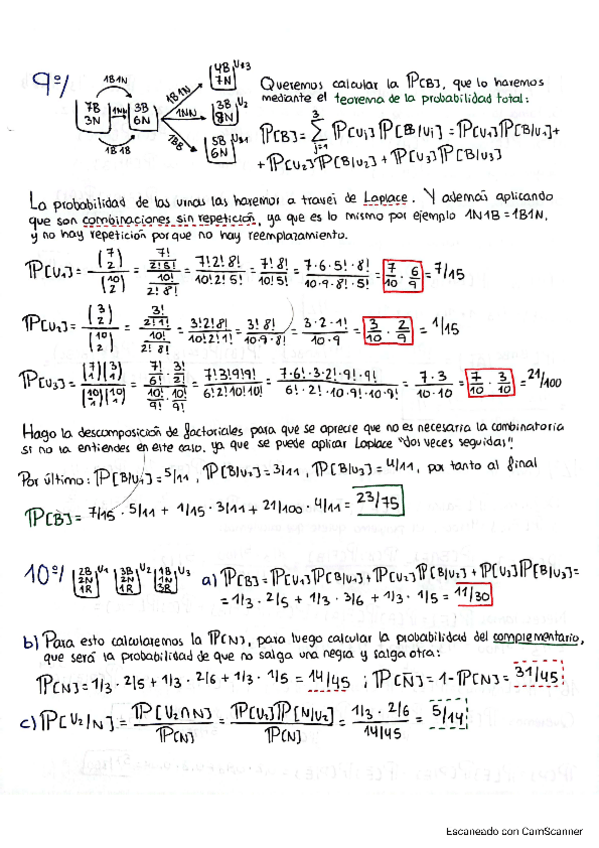 9º/
1B1N
7B
3N
1NN
3B
6N
1B1B
1B1N
1NN
1BB
4B
7N
U3
3B
8N
U2
5B
6N
U1
Queremos calcular la P[B], que lo haremos
mediante el teorema de la probabilidad total:
P[B] = Σ P[Ui] P[B/Ui] = P[U1] P[B/U1] +
+ P[U2] P[B/U2] + P[U3] P[B/U3]
La probabilidad de las urnas las haremos a través de Laplace. Y además aplicando
que son combinaciones sin repetición, ya que es lo mismo por ejemplo 1N1B = 1B1N,
y no hay repetición porque no hay reemplazamiento.
P[U1] = (7 2)/(10 2) = 7!/2!5! / 10!/2!8! = 7!2!8!/10!2!5! = 7!8!/10!5! = 7·6·5!·8!/10·9·8!·5! = 7/10 · 6/9 = 7/15
P[U2] = (3 2)/(10 2) = 3!/2!1! / 10!/2!8! = 3!2!8!/10!2!1! = 3!8!/10·9·8! = 3·2·1!/10·9 = 3/10 · 2/9 = 1/15
P[U3] = (7 1)(3 1)/(10 1)(10 1) = 7!/6! · 3!/2! / 10!/9! · 10!/9! = 7!3!9!9!/6!2!10!10! = 7·6!·3·2!·9!·9!/6!·2!·10·9!·10·9! = 7·3/10·10 = 7/10 · 3/10 = 21/100
Hago la descomposición de factoriales para que se aprecie que no es necesaria la combinatoria
si no la entiendes en este caso, ya que se puede aplicar Laplace "dos veces seguidas".
Por último: P[B/U1] = 5/11, P[B/U2] = 3/11, P[B/U3] = 4/11, por tanto al final
P[B] = 7/15 · 5/11 + 1/15 · 3/11 + 21/100 · 4/11 = 23/75
10º/
2B
2N
1R
U1
3B
2N
1R
U2
1B
1N
3R
U3
a) P[B] = P[U1] P[B/U1] + P[U2] P[B/U2] + P[U3] P[B/U3] =
= 1/3 · 2/5 + 1/3 · 3/6 + 1/3 · 1/5 = 11/30
b) Para esto calcularemos la P[N], para luego calcular la probabilidad del complementario,
que será la probabilidad de que no salga una negra y salga otra:
P[N] = 1/3 · 2/5 + 1/3 · 2/6 + 1/3 · 1/5 = 14/45 ; P[N̄] = 1 - P[N] = 31/45
c) P[U2/N] = P[U2∩N]/P[N] = P[U2] P[N/U2]/P[N] = 1/3 · 2/6 / 14/45 = 5/14
Escaneado con CamScanner